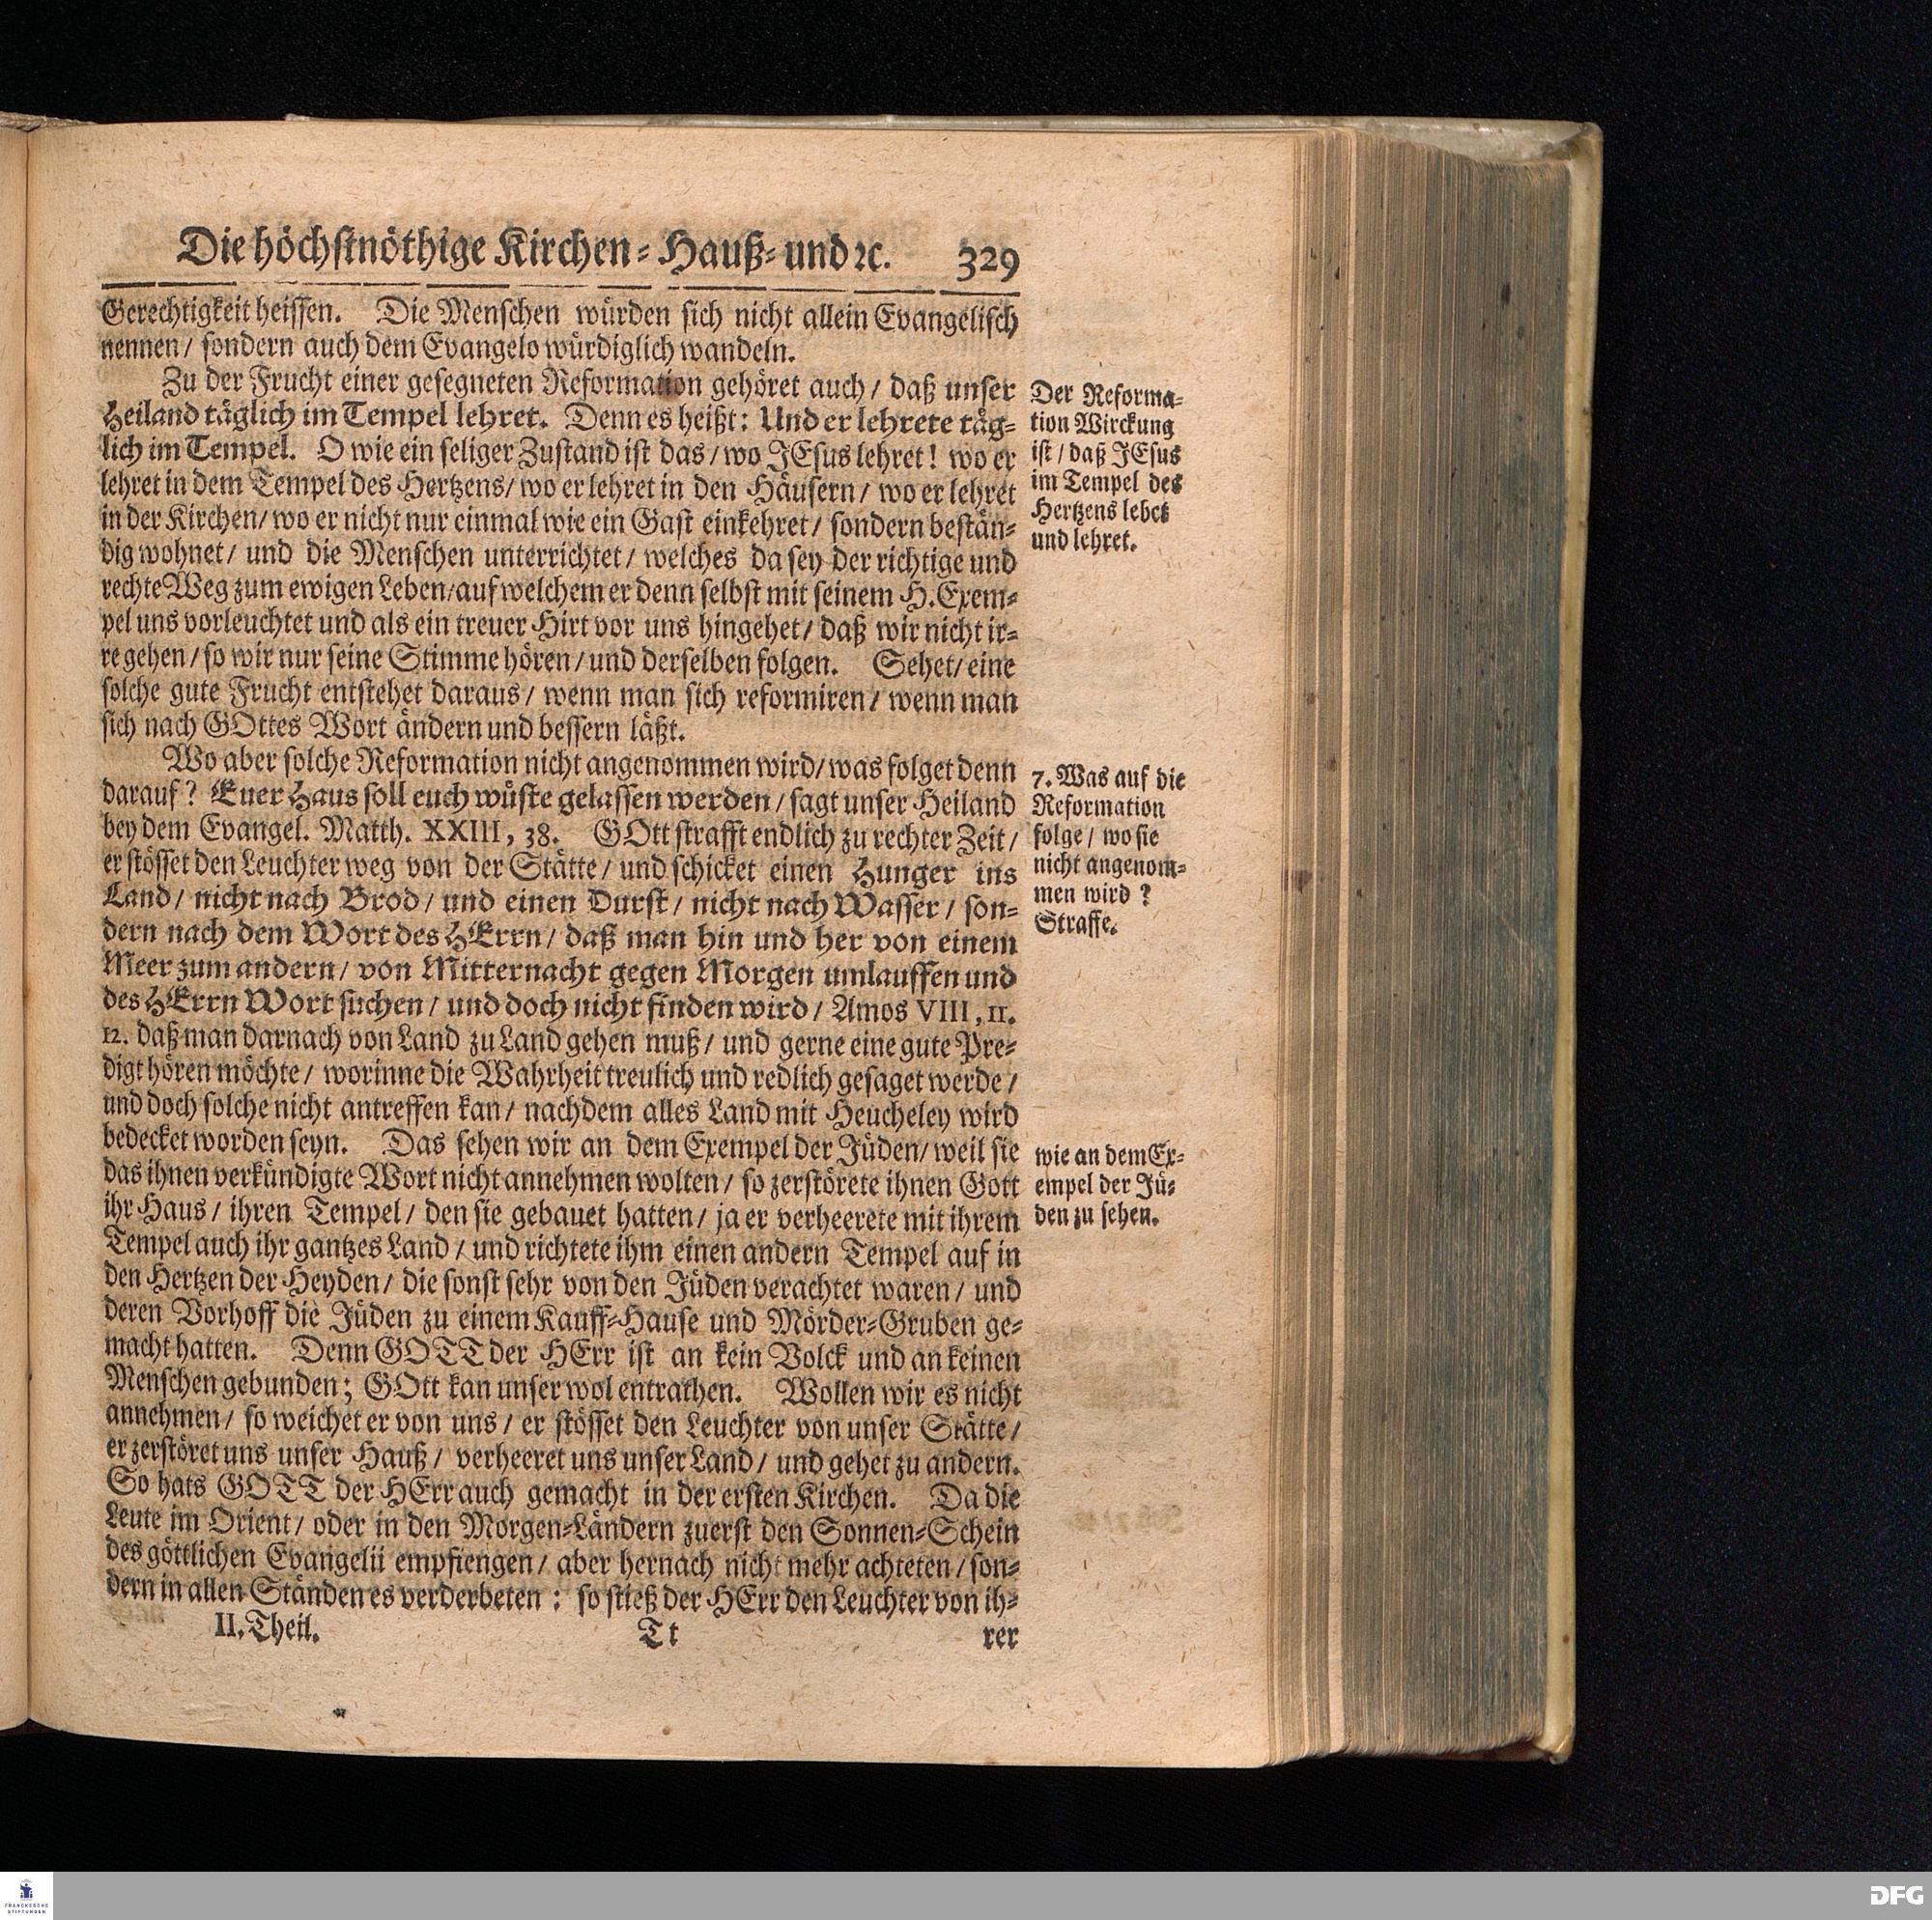 Die höchstnöthige Kirchen- Hauß- und ꝛc. 329
Gerechtigkeit heissen. Die Menschen würden sich nicht allein Evangelisch
nennen / sondern auch dem Evangelo würdiglich wandeln.
Zu der Frucht einer gesegneten Reformation gehöret auch / daß unser
Heiland täglich im Tempel lehret. Denn es heißt: Und er lehrete täg-
lich im Tempel. O wie ein seliger Zustand ist das / wo JEsus lehret! wo er
lehret in dem Tempel des Hertzens / wo er lehret in den Häusern / wo er lehret
in der Kirchen / wo er nicht nur einmal wie ein Gast einkehret / sondern bestän-
dig wohnet / und die Menschen unterrichtet / welches da sey der richtige und
rechte Weg zum ewigen Leben / auf welchem er denn selbst mit seinem H. Exem-
pel uns vorleuchtet und als ein treuer Hirt vor uns hingehet / daß wir nicht ir-
re gehen / so wir nur seine Stimme hören / und derselben folgen. Sehet / eine
solche gute Frucht entstehet daraus / wenn man sich reformiren / wenn man
sich nach GOttes Wort ändern und bessern läßt.
Der Reforma-
tion Wirckung
ist / daß JEsus
im Tempel des
Hertzens lebet
und lehret.
Wo aber solche Reformation nicht angenommen wird / was folget denn
darauf? Euer Haus soll euch wüste gelassen werden / sagt unser Heiland
bey dem Evangel. Matth. XXIII, 38. GOtt strafft endlich zu rechter Zeit /
er stösset den Leuchter weg von der Stätte / und schicket einen Hunger ins
Land / nicht nach Brod / und einen Durst / nicht nach Wasser / son-
dern nach dem Wort des HErrn / daß man hin und her von einem
Meer zum andern / von Mitternacht gegen Morgen umlauffen und
des HErrn Wort suchen / und doch nicht finden wird / Amos VIII, 11.
12. daß man darnach von Land zu Land gehen muß / und gerne eine gute Pre-
digt hören möchte / worinne die Wahrheit treulich und redlich gesaget werde /
und doch solche nicht antreffen kan / nachdem alles Land mit Heucheley wird
bedecket worden seyn. Das sehen wir an dem Exempel der Jüden / weil sie
das ihnen verkündigte Wort nicht annehmen wolten / so zerstörete ihnen Gott
ihr Haus / ihren Tempel / den sie gebauet hatten / ja er verheerete mit ihrem
Tempel auch ihr gantzes Land / und richtete ihm einen andern Tempel auf in
den Hertzen der Heyden / die sonst sehr von den Jüden verachtet waren / und
deren Vorhoff die Jüden zu einem Kauff-Hause und Mörder-Gruben ge-
macht hatten. Denn GOTT der HErr ist an kein Volck und an keinen
Menschen gebunden; GOtt kan unser wol entrathen. Wollen wir es nicht
annehmen / so weichet er von uns / er stösset den Leuchter von unser Stätte /
er zerstöret uns unser Hauß / verheeret uns unser Land / und gehet zu andern.
So hats GOTT der HErr auch gemacht in der ersten Kirchen. Da die
Leute im Orient / oder in den Morgen-Ländern zuerst den Sonnen-Schein
des göttlichen Evangelii empfiengen / aber hernach nicht mehr achteten / son-
dern in allen Ständen es verderbeten : so stieß der HErr den Leuchter von ih-
7. Was auf die
Reformation
folge / wo sie
nicht angenom-
men wird ?
Straffe.
wie an dem Ex-
empel der Jü-
den zu sehen.
II. Theil. Tt rer
FRANCKESCHE
STIFTUNGEN
DFG